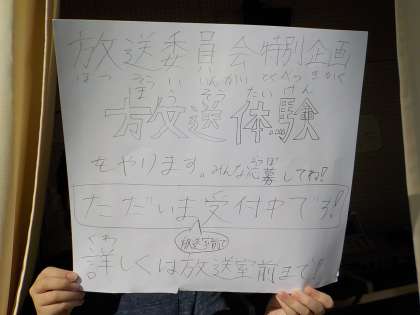 放送委員会特別企画
ほうそういいんかいとくべつきかく
ほうそうたいけん
放送体験
をやります。みんな応募してね!
おうぼ
ただいま受付中です!
放送室前で
くわ
詳しくは放送室前まで!